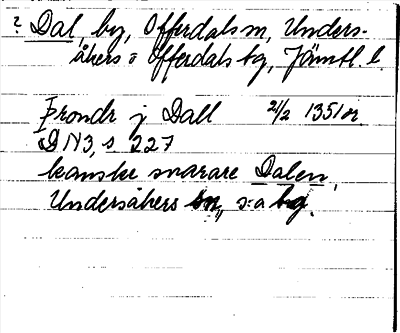 ? Dal, by, Offerdals sn, Unders-
åkers o Offerdals tg, Jämtl l.
Þrondr j Dall 2/2 1351 or.
DN3, s 227
kanske snarare Dalen,
Undersåkers sn, s:a tg.